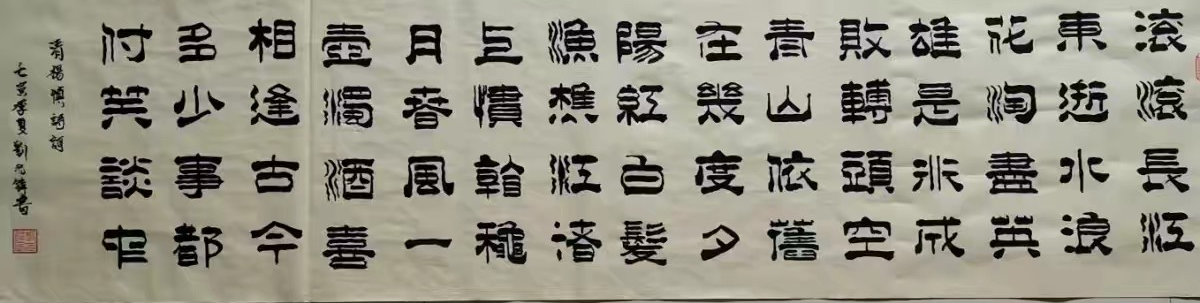 滚滚長江
東逝水浪
花淘盡英
雄是非成
敗轉頭空
青山依舊
在幾度夕
陽紅白髮
漁樵江渚
上慣看秋
月春風一
壺濁酒喜
相逢古今
多少事都
付笑談中
楊慎詩詞
壬寅季夏劉書